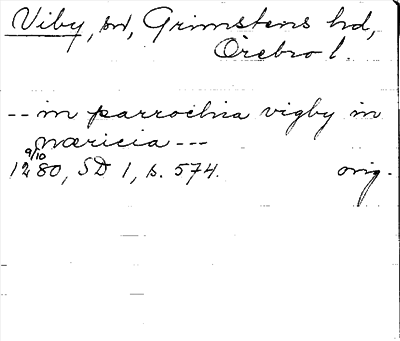 Viby, sn, Grimstens hd,
Örebro l.
-- in parrochia vigby in
næricia ---
9/10
1280, SD 1, s. 574. orig.